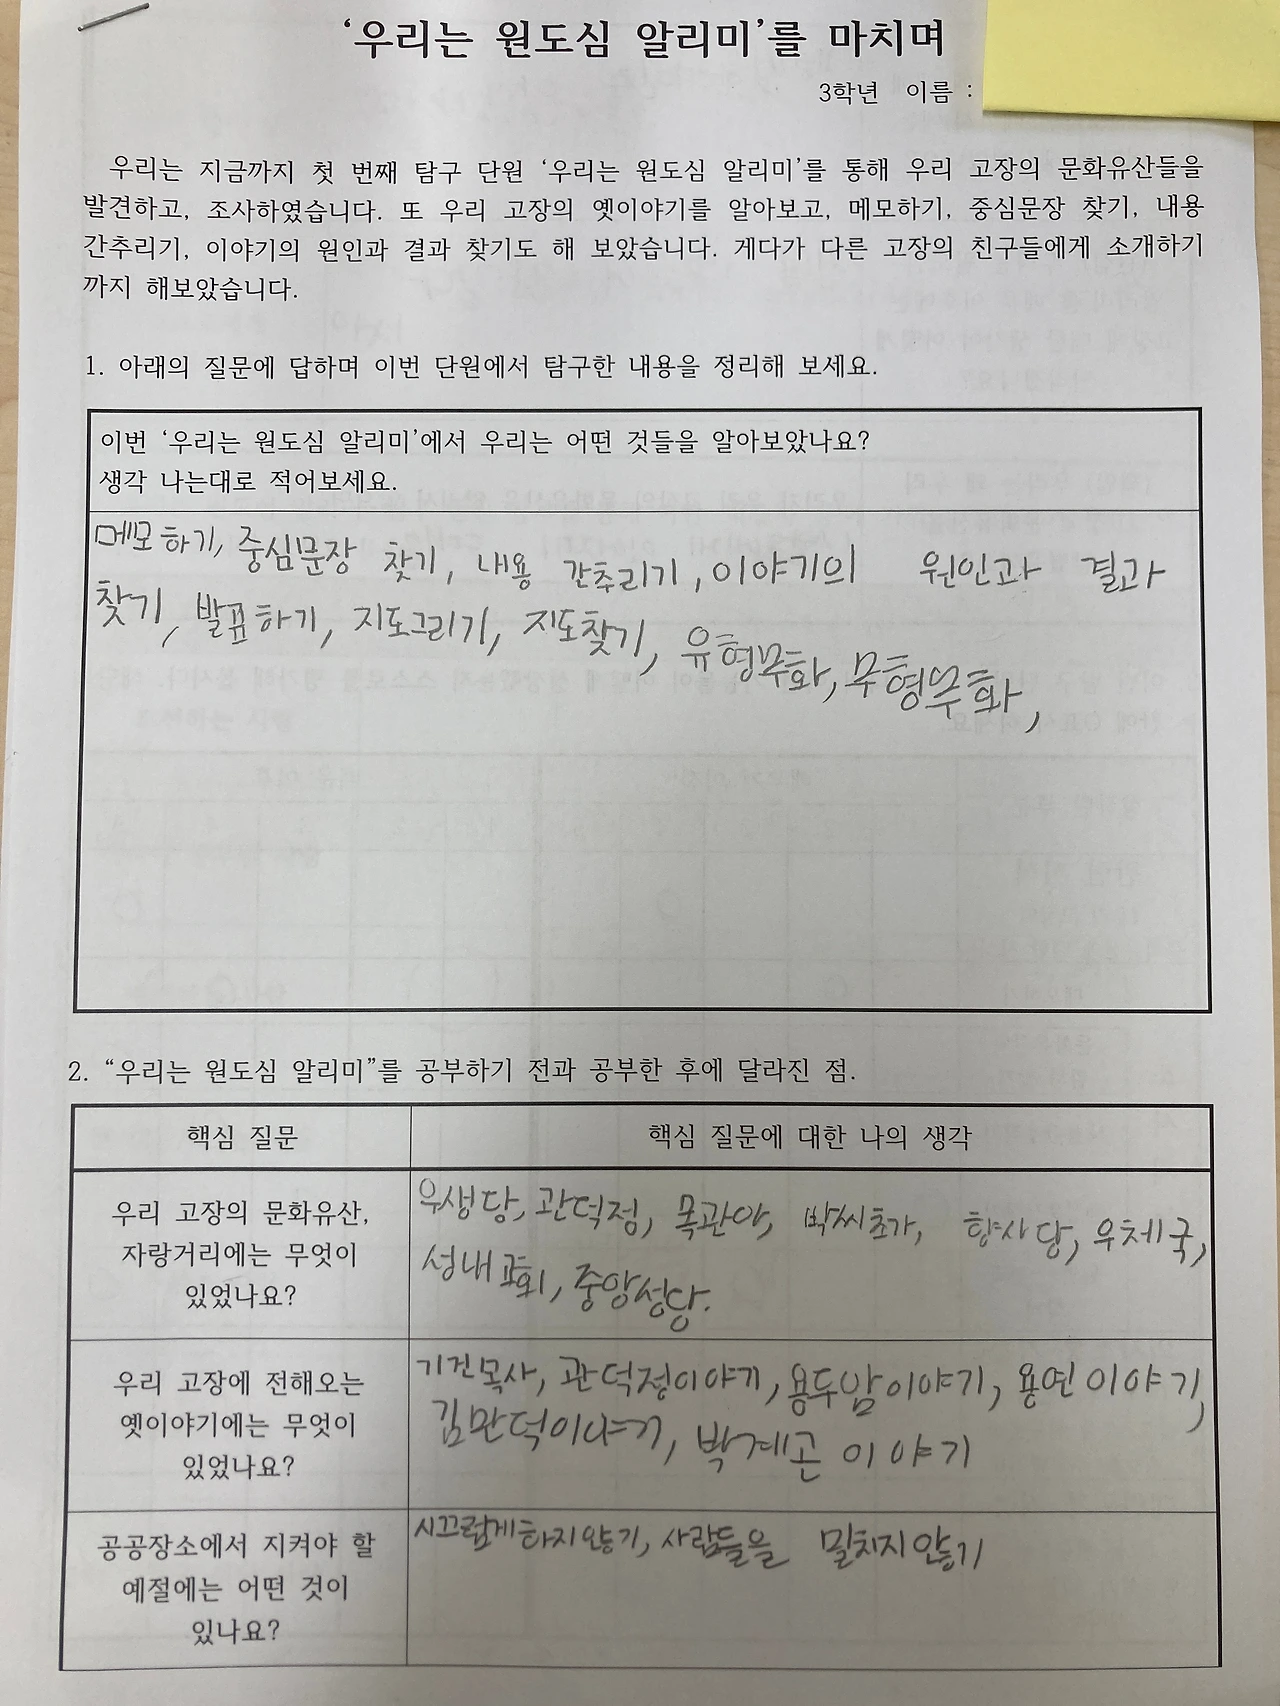 ‘우리는 원도심 알리미’를 마치며
3학년 이름 :
우리는 지금까지 첫 번째 탐구 단원 ‘우리는 원도심 알리미’를 통해 우리 고장의 문화유산들을
발견하고, 조사하였습니다. 또 우리 고장의 옛이야기를 알아보고, 메모하기, 중심문장 찾기, 내용
간추리기, 이야기의 원인과 결과 찾기도 해 보았습니다. 게다가 다른 고장의 친구들에게 소개하기
까지 해보았습니다.
1. 아래의 질문에 답하며 이번 단원에서 탐구한 내용을 정리해 보세요.
이번 ‘우리는 원도심 알리미’에서 우리는 어떤 것들을 알아보았나요?
생각 나는대로 적어보세요.
메모하기, 중심문장 찾기, 내용 간추리기, 이야기의 원인과 결과
찾기, 발표하기, 지도그리기, 지도찾기, 유형문화, 무형문화,
2. “우리는 원도심 알리미”를 공부하기 전과 공부한 후에 달라진 점.
핵심 질문
핵심 질문에 대한 나의 생각
우리 고장의 문화유산,
자랑거리에는 무엇이
있었나요?
우생당, 관덕정, 목관아, 박씨초가, 향사당, 우체국,
성내교회, 중앙성당.
우리 고장에 전해오는
옛이야기에는 무엇이
있었나요?
기건목사, 관덕정이야기, 용두암이야기, 용연이야기,
김만덕이야기, 박계곤 이야기
공공장소에서 지켜야 할
예절에는 어떤 것이
있나요?
시끄럽게하지않기, 사람들을 밀치지않기